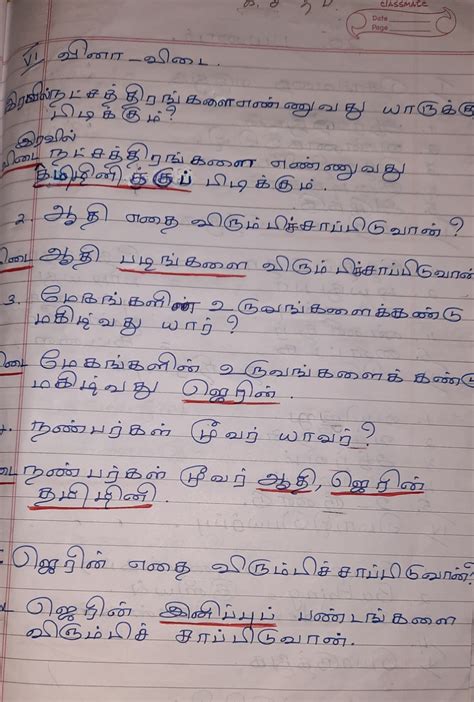 classmate
Date
Page
VI வினா - விடை.
இரவில் நட்சத்திரங்களை எண்ணுவது யாருக்கு
பிடிக்கும்?
இரவில்
விடை நட்சத்திரங்களை எண்ணுவது
தமிழினிக்குப் பிடிக்கும்.
2. ஆதி எதை விரும்பிச்சாப்பிடுவான்?
விடை ஆதி பழங்களை விரும்பிச்சாப்பிடுவான்
3. மேகங்களின் உருவங்களைக்கண்டு
மகிழ்வது யார்?
விடை மேகங்களின் உருவங்களைக் கண்டு
மகிழ்வது ஜெரின்.
நண்பர்கள் மூவர் யாவர்?
நண்பர்கள் மூவர் ஆதி, ஜெரின்
தமிழினி.
ஜெரின் எதை விரும்பிச்சாப்பிடுவான்?
ஜெரின் இனிப்புப் பண்டங்களை
விரும்பிச் சாப்பிடுவான்.